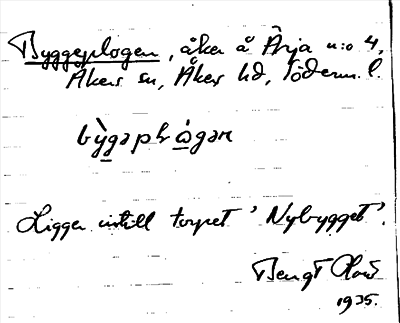 Byggeplogen, åker å Ärja n:o 4,
Åkers sn, Åkers hd, Söderm. l.
Ligger intill torpet 'Nybygget'.
Bengt
1935.